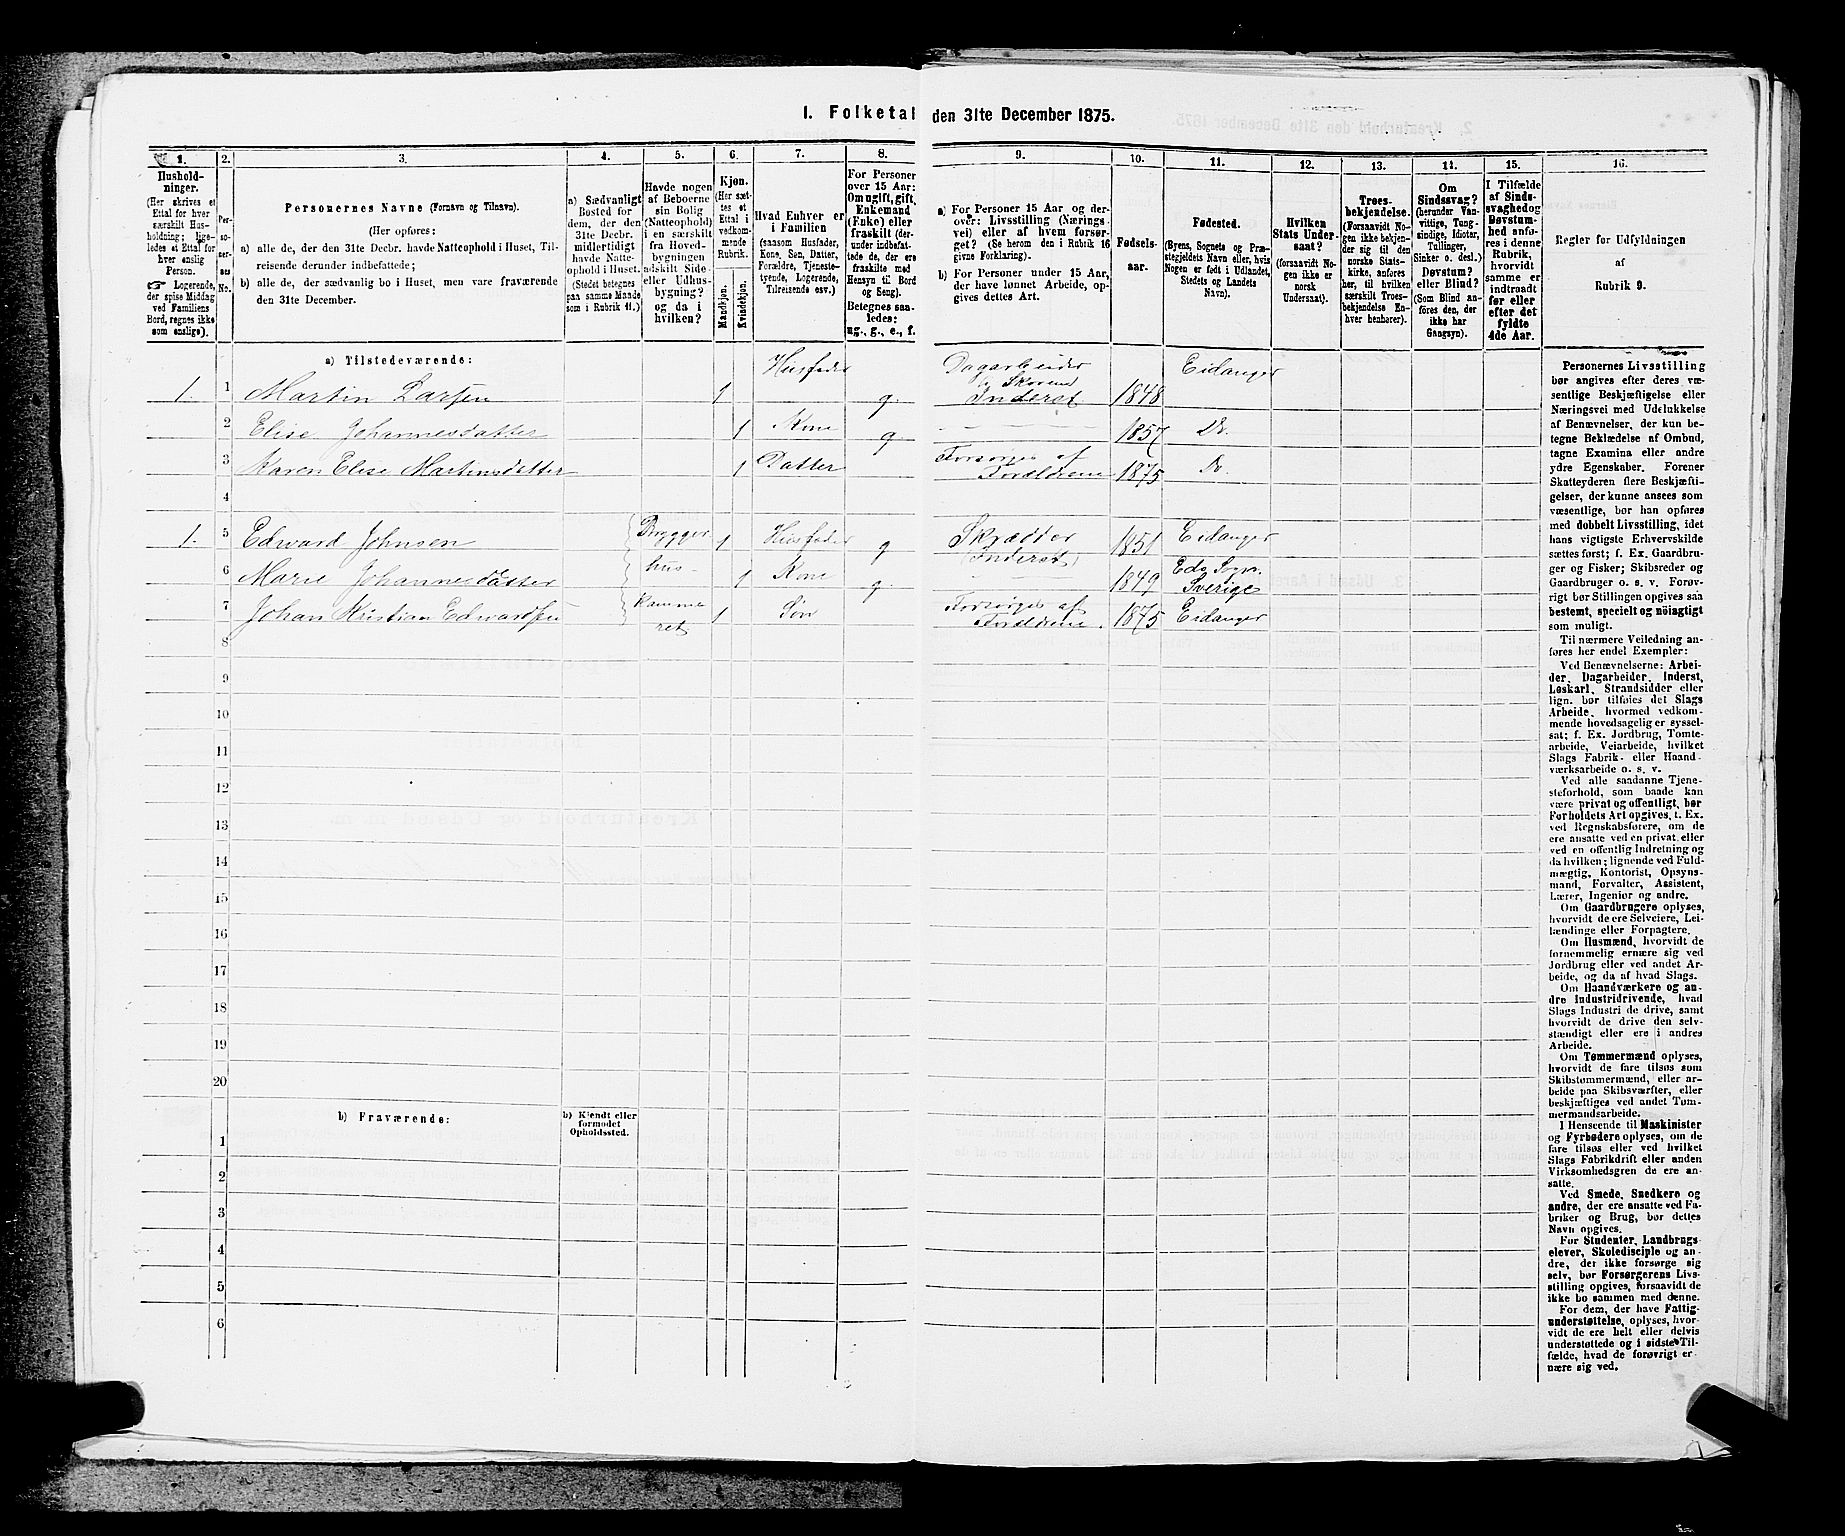 I. Folketal den 31te December 1875.
1. 2. 3. 4. 5. 6. 7. 8. 9. 10. 11. 12. 13. 14. 15. 16.
Husholdninger.
(Her skrives et
Ettal for hver
særskilt Husholdning; ligeledes et Ettal for
hver enslig
Person.
☞ Logerende,
der spise Middag
ved Familiens
Bord, regnes ikke
som enslige).
Personernes No.
Personernes Navne (Fornavn og Tilnavn).
(Her opføres:
a) alle de, der den 31te Decbr. havde Natteophold i Huset, Tilreisende derunder indbefattede;
b) alle de, der sædvanlig bo i Huset, men vare fraværende
den 31te December.
a) Sædvanligt
Bosted for
dem, der den
31te Decbr.
midlertidigt
havde Natteophold i Huset.
(Stedet betegnes
paa samme Maade
som i Rubrik 11.)
Havde nogen
af Beboerne
sin Bolig
(Natteophold)
i en særskilt
fra Hovedbygningen
adskilt Side- eller Udhusbygning?
og da i
hvilken?
Kjøn.
(Her sættes et
Ettal i
vedkommende
Rubrik.
Mandkjøn.
Kvindekjøn.
Hvad Enhver er
i Familien
(saasom Husfader,
Kone, Søn, Datter,
Forældre, Tjenestetyende, Logerende,
Tilreisende osv.)
For Personer
over 15 Aar:
Om ugift, gift,
Enkemand
(Enke) eller
fraskilt (derunder indbefattede de, der ere
fraskilte med
Hensyn til Bord
og Seng).
Betegnes saaledes:
ug., g., e., f.
a) For Personer 15 Aar og derover: Livsstilling (Næringsvei) eller af hvem forsørget? (Se herom den i Rubrik 16
givne Forklaring).
b) For Personer under 15 Aar,
der have lønnet Arbeide, opgives dettes Art.
Fødselsaar.
Fødested.
(Byens, Sognets og Præstegjeldets Navn eller, hvis
Nogen er født i Udlandet,
Stedets og Landets
Navn).
Hvilken
Stats Undersaat?
(forsaavidt Nogen ikke er
norsk
Undersaat).
Troesbekjendelse.
(Forsaavidt Nogen ikke bekjender sig til den
norske Statskirke, anføres
her, til hvilken
særskilt Troesbekjendelse Enhver henhører).
Om
Sindssvag?
(herunder Vanvittige, Tungsindige, Idioter,
Tullinger,
Sinker o. desl.)
Døvstum?
eller Blind?
(Som Blind anføres den, der
ikke har
Gangsyn).
I Tilfælde
af Sindssvaghed og
Døvstumhed anføres i denne
Rubrik,
hvorvidt
samme er
indtraadt
før eller
efter det
fyldte
4de Aar.
Regler for Udfyldningen
af
Rubrik 9.
a) Tilstedeværende:
1. 1 Martin Larsen 1 Husfader g. Dagarbeider Inderst 1848 Eidanger
2 Elise Johannesdatter 1 Kone g. 1857 Do.
3 Karen Elise Martinsdatter 1 Datter Forsørges af Forældrene 1875 Do.
4
1. 5 Edward Johnsen Bryggerhus- 1 Husfader g Skrædder (Inderst) 1851 Eidanger
6 Marie Johannesdatter 1 Kone g. 1849 Eda Sogn Sverige
7 Johan Kristian Edwardsen Kammeret 1 Søn Forsørges af Forældrene. 1875 Eidanger
8
9
10
11
12
13
14
15
16
17
18
19
20
b) Fraværende:
b) Kjendt eller
formodet
Opholdssted.
1
2
3
4
5
6
Personernes Livsstilling
bør angives efter deres væsentlige Beskjæftigelse eller
Næringsvei med Udelukkelse
af Benævnelser, der kun betegne Beklædelse af Ombud,
tagne Examina eller andre
ydre Egenskaber. Forener
Skatteyderen flere Beskjæftigelser, der kunne ansees som
væsentlige, bør han opføres
med dobbelt Livsstilling, idet
hans vigtigste Erhvervskilde
sættes først; f. Ex. Gaardbruger og Fisker; Skibsreder og
Gaardbruger o. s. v. Forøvrigt bør Stillingen opgives saa
bestemt, specielt og nöiagtigt
som muligt.
Til nærmere Veiledning anføres her endel Exempler:
Ved Benævnelserne: Arbeider, Dagarbeider, Inderst,
Løskarl, Strandsidder eller
lign. bør tilføies det Slags
Arbeide, hvormed vedkommende hovedsagelig er sysselsat; f. Ex. Jordbrug, Tomtearbeide, Veiarbeide, hvilket
Slags Fabrik- eller Haandværksarbeide o. s. v.
Ved alle saadanne Tjenesteforhold, som baade kan
være privat og offentligt, bør
Forholdets Art opgives, t. Ex.
ved Regnskabsførere, om de
ere ansatte ved en privat eller
ved en offentlig Indretning og
da hvilken; lignende ved Fuldmægtig, Kontorist, Opsynsmand, Forvalter, Assistent,
Lærer, Ingeniør og andre.
Om Gaardbrugere oplyses,
hvorvidt de ere Selveiere, Leilændinge eller Forpagtere.
Om Husmænd, hvorvidt de
fornemmelig ernære sig ved
Jordbrug eller ved andet Arbeide, og da af hvad Slags.
Om Haandværkere og andre Industridrivende, hvad
Slags Industri de drive, samt
hvorvidt de drive den selvstændigt eller ere i andres
Arbeide.
Om Tømmermænd oplyses,
hvorvidt de fare tilsøs som
Skibstømmermænd, eller arbeide paa Skibsværfter, eller
beskjæftiges ved andet Tømmermandsarbeide.
I Henseende til Maskinister
og Fyrbødere oplyses, om de
fare tilsøs eller ved hvilket
Slags Fabrikdrift eller anden
Virksomhedsgren de ere ansatte.
Ved Smede, Snedkere og
andre, der ere ansatte ved Fabriker og Brug, bør dettes
Navn opgives.
For Studenter, Landbrugselever, Skoledisciple og andre, der ikke forsørge sig
selv, bør Forsørgerens Livsstilling opgives, forsaavidt de
ikke bo sammen med denne.
For dem, der have Fattigunderstøttelse, oplyses, hvorvidt de ere helt eller delvis
understøttede og i sidste Tilfælde, hvad de forøvrigt ernære sig ved.